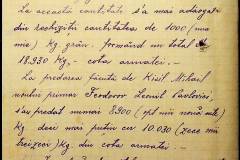 La această cantitate s'a mai adăogat
din rechiziții cantitatea de 1000 (una
mie) Kg grâu, formând un total de
18.930 Kg,- cota armatei.-
La predarea făcută de Kisil Mihael
fostul primar Teodorov Leonid Pavlovici,
s'au predat numai 8900 (opt mii nouă sute)
Kg deci mai puțin cu 10.030 (zece mii
treizeci) Kg. din cota armatei.-